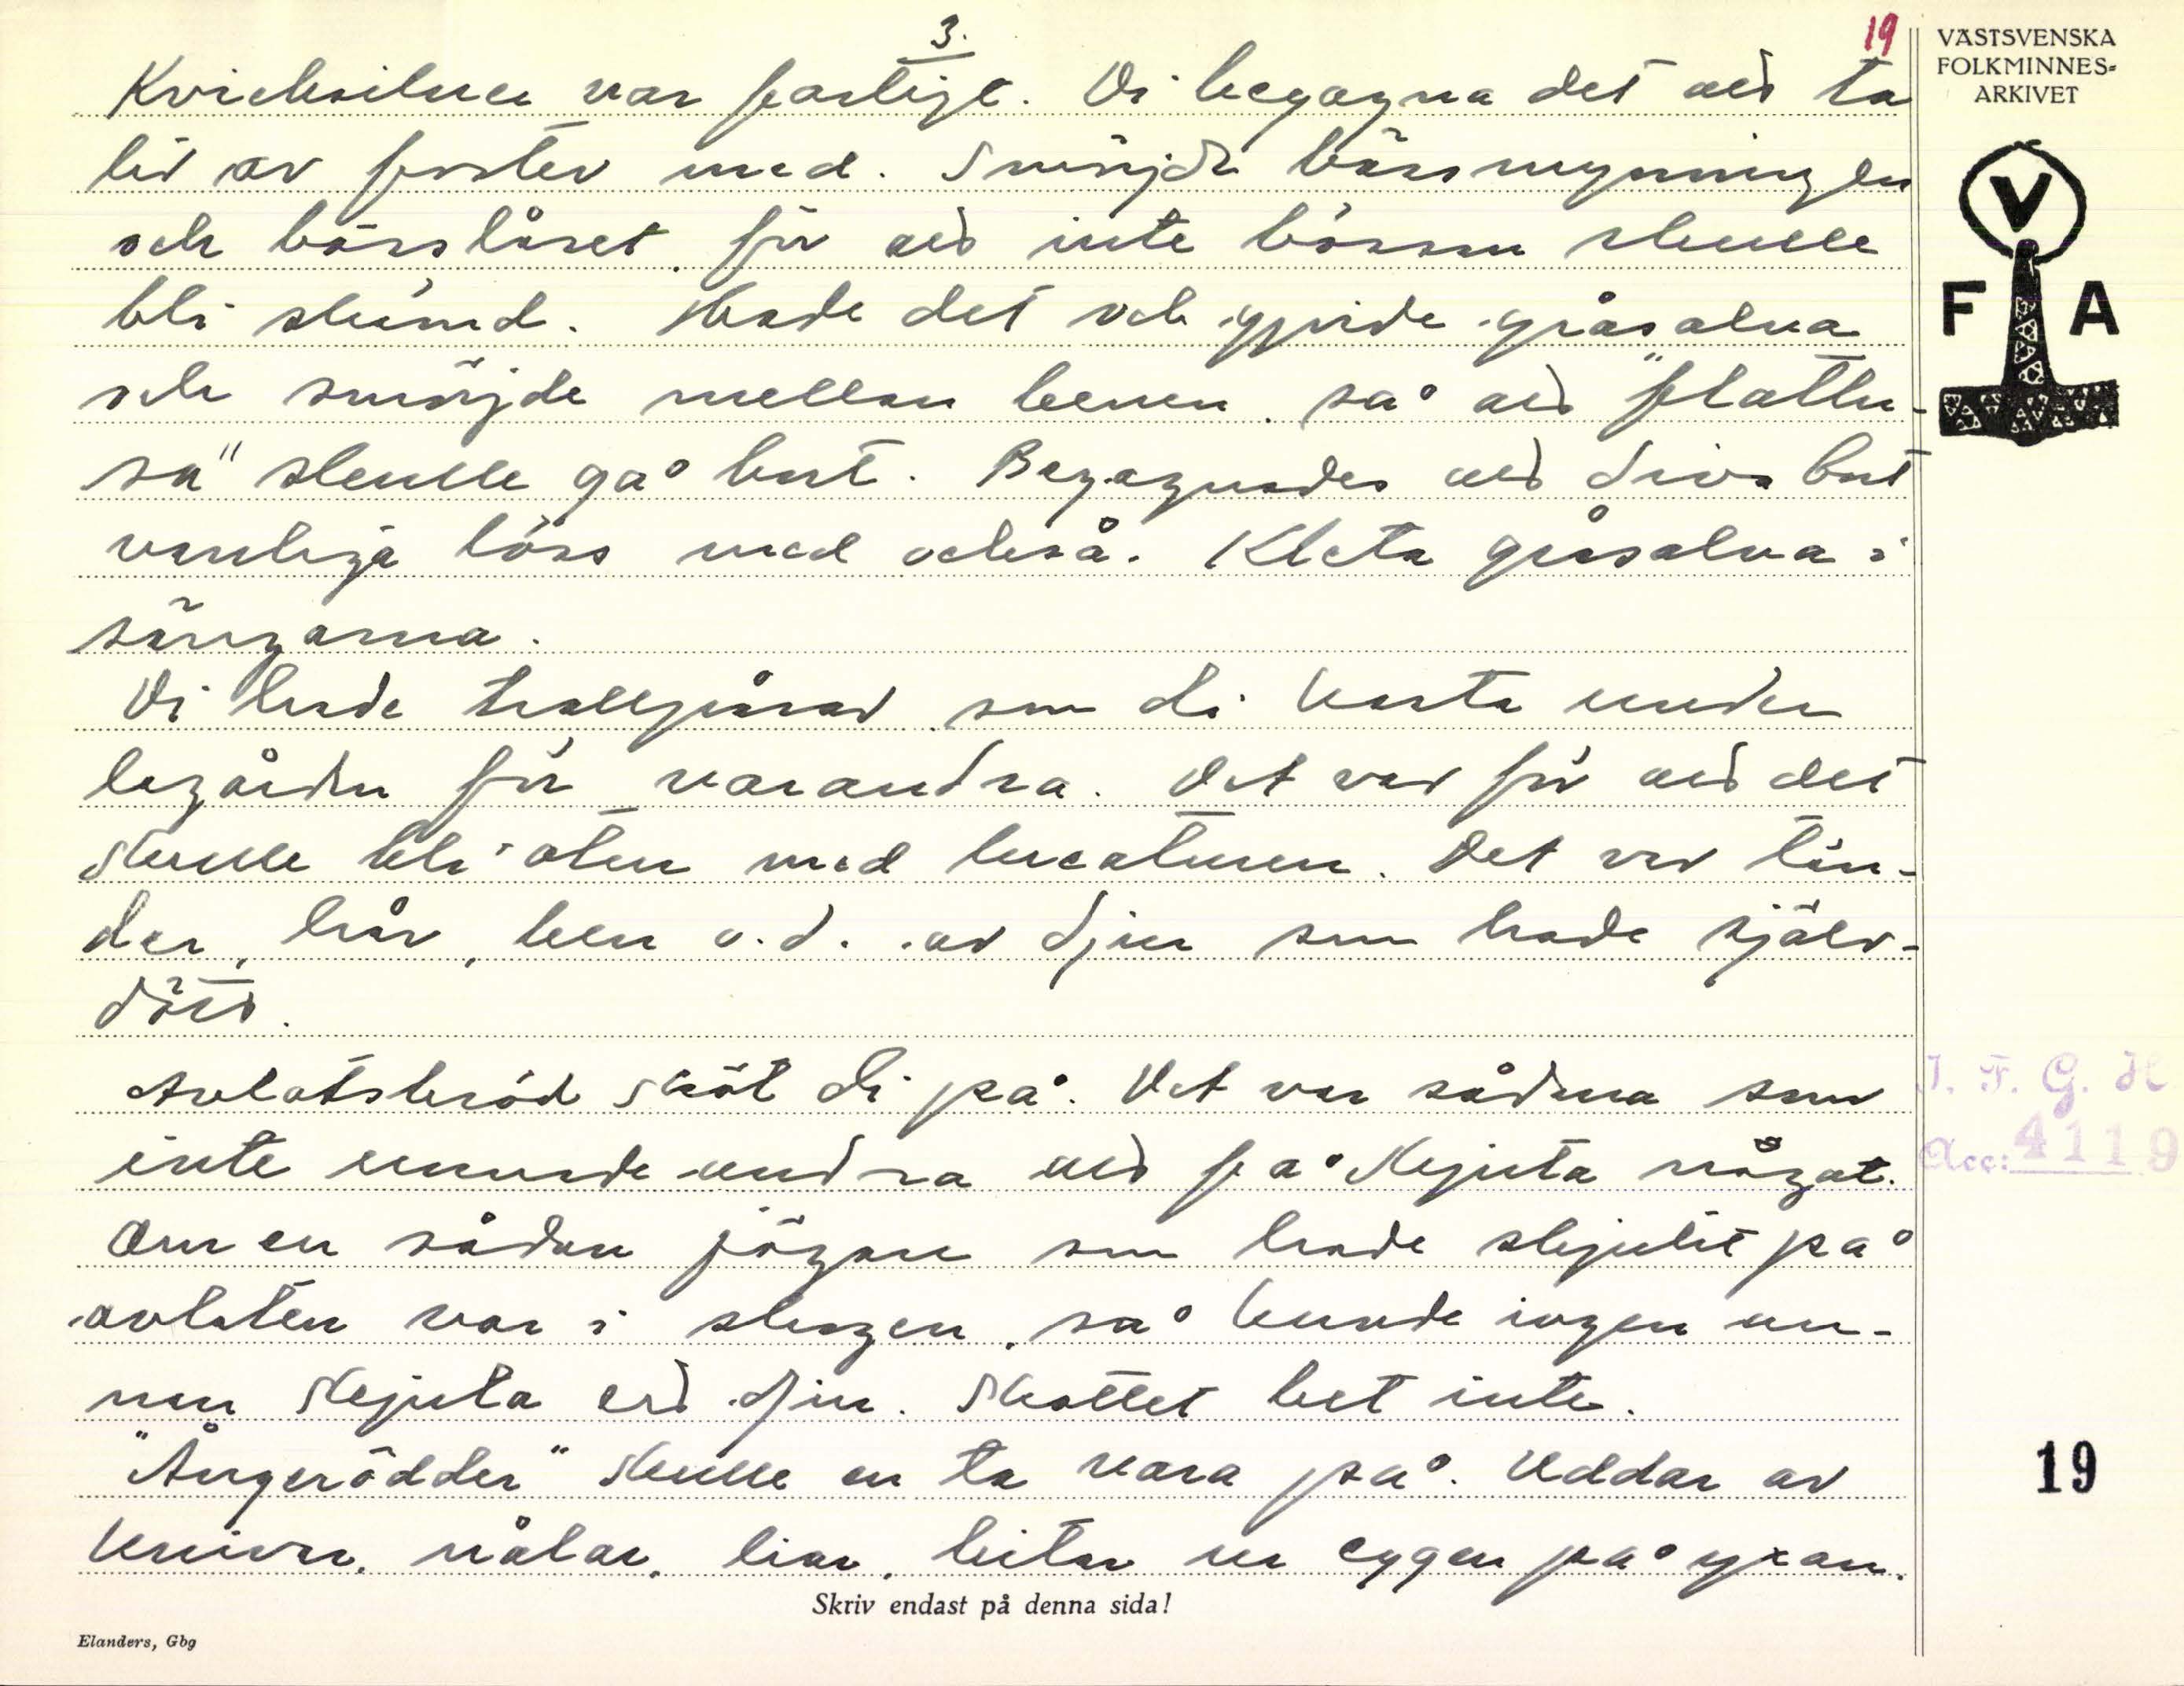 3.
19
VÄSTSVENSKA
FOLKMINNES-
ARKIVET
Kvicksilver var farligt. Vi begagna det att ta
bort av med. Smörjde bössmynningen
och bösslåset, för att inte bössan skulle
bli skämd. Hade det och gjorde gråsalva
och smörjde mellan benen, så att "flattlu-
sa" skulle gå bort. Begagnades att driva bort
vanliga löss med också. Kleta gråsalva i
sängarna.
Vi hade trollpåsar som di kasta under
lagårdn för varandra. Det var för att det
skulle bli otur med kreaturen. Det var tän-
der, hår, ben o.d. av djur som hade själv-
dött.
Avlatsbröd sköt di på. Det var sådana som
inte unnade andra att få skjuta något.
Om en sådan jägare som hade skjutit på
avlaten var i skogen, så kunde ingen an-
nan skjuta ett djur. Skottet bet inte.
"Ångerödder" skulle en ta vara på. Uddar av
knivar, nålar, liar, bitar ur eggen på yxan.
V
F A
J. F. G. H
Acc: 4119
19
Skriv endast på denna sida!
Elanders, Gbg